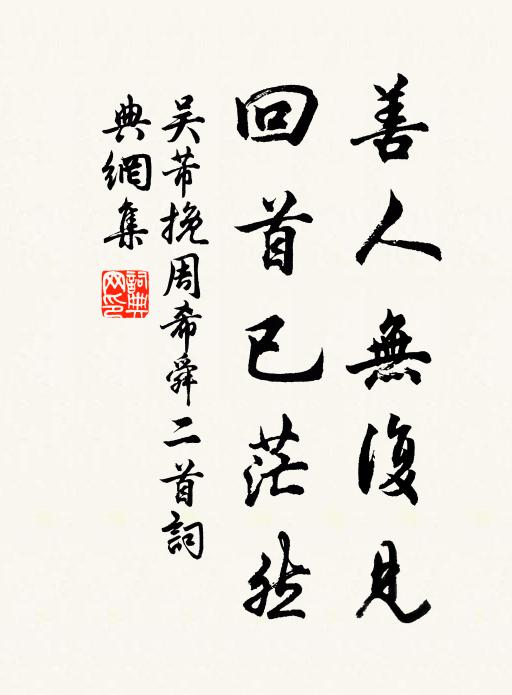 善人無復見
回首已茫然
吴芾挽周希舜二首詞
典網集
詞典網印